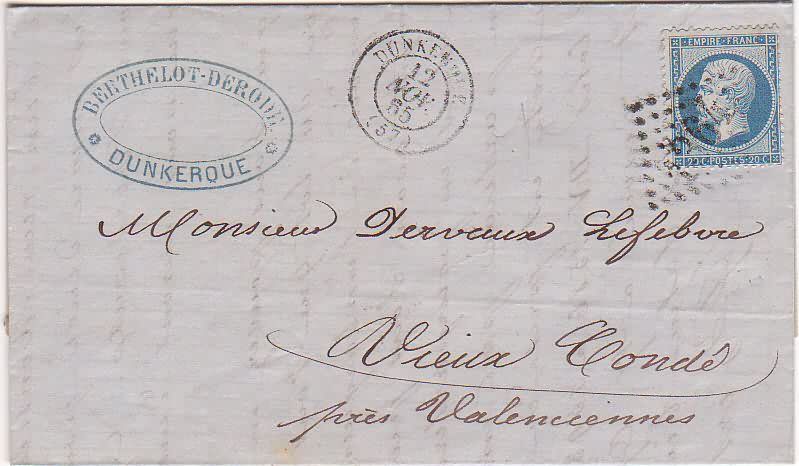 BERTHELOT-DERODE
DUNKERQUE
DUNKERQUE
12
NOV.
65
(57)
EMPIRE FRANC
20 C POSTES 20 C
Monsieur Dervaux Lefebvre
Vieux Condé
près Valenciennes